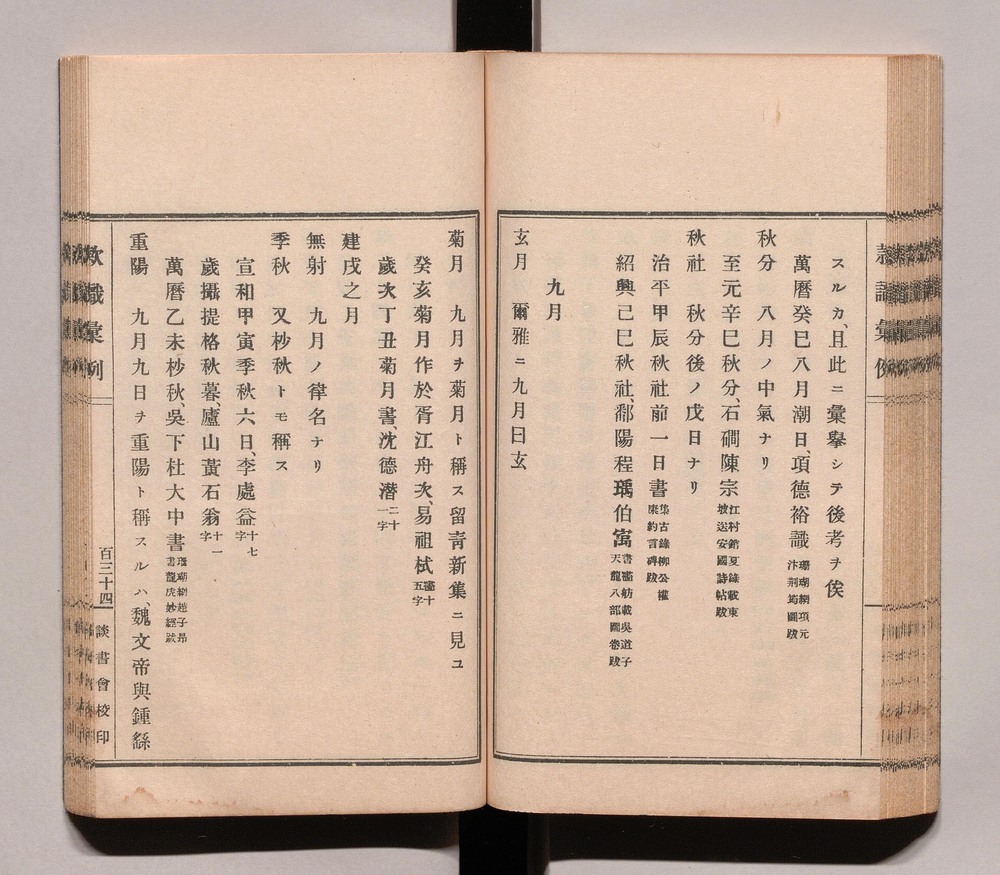 スルカ、且此ニ彙擧シテ後考ヲ俟
萬曆癸巳八月潮日、項德裕識 珊瑚網項元
汴荆筠圖跋
秋分 八月ノ中氣ナリ
至元辛巳秋分、石磵陳宗 江村銷夏錄載東
坡送安國詩帖跋
秋社 秋分後ノ戊日ナリ
治平甲辰秋社前一日書 集古錄柳公權
廉約言碑跋
紹興己巳秋社、鄱陽程瑀伯寓 書畵舫載吳道子
天龍八部圖卷跋
九月
玄月 爾雅ニ九月曰玄
菊月 九月ヲ菊月ト稱ス留靑新集ニ見ユ
癸亥菊月作於胥江舟次、易祖栻 畵十
五字
歲次丁丑菊月書、沈德潛 二十
一字
建戌之月
無射 九月ノ律名ナリ
季秋 又杪秋トモ稱ス
宣和甲寅季秋六日、李處益 十七
字
歲攝提格秋暮、廬山黃石翁 十一
字
萬曆乙未杪秋、吳下杜大中書 珊瑚網趙子昂
書龍虎妙經跋
重陽 九月九日ヲ重陽ト稱スルハ、魏文帝與鍾繇
款識彙例
百三十四
談書會校印